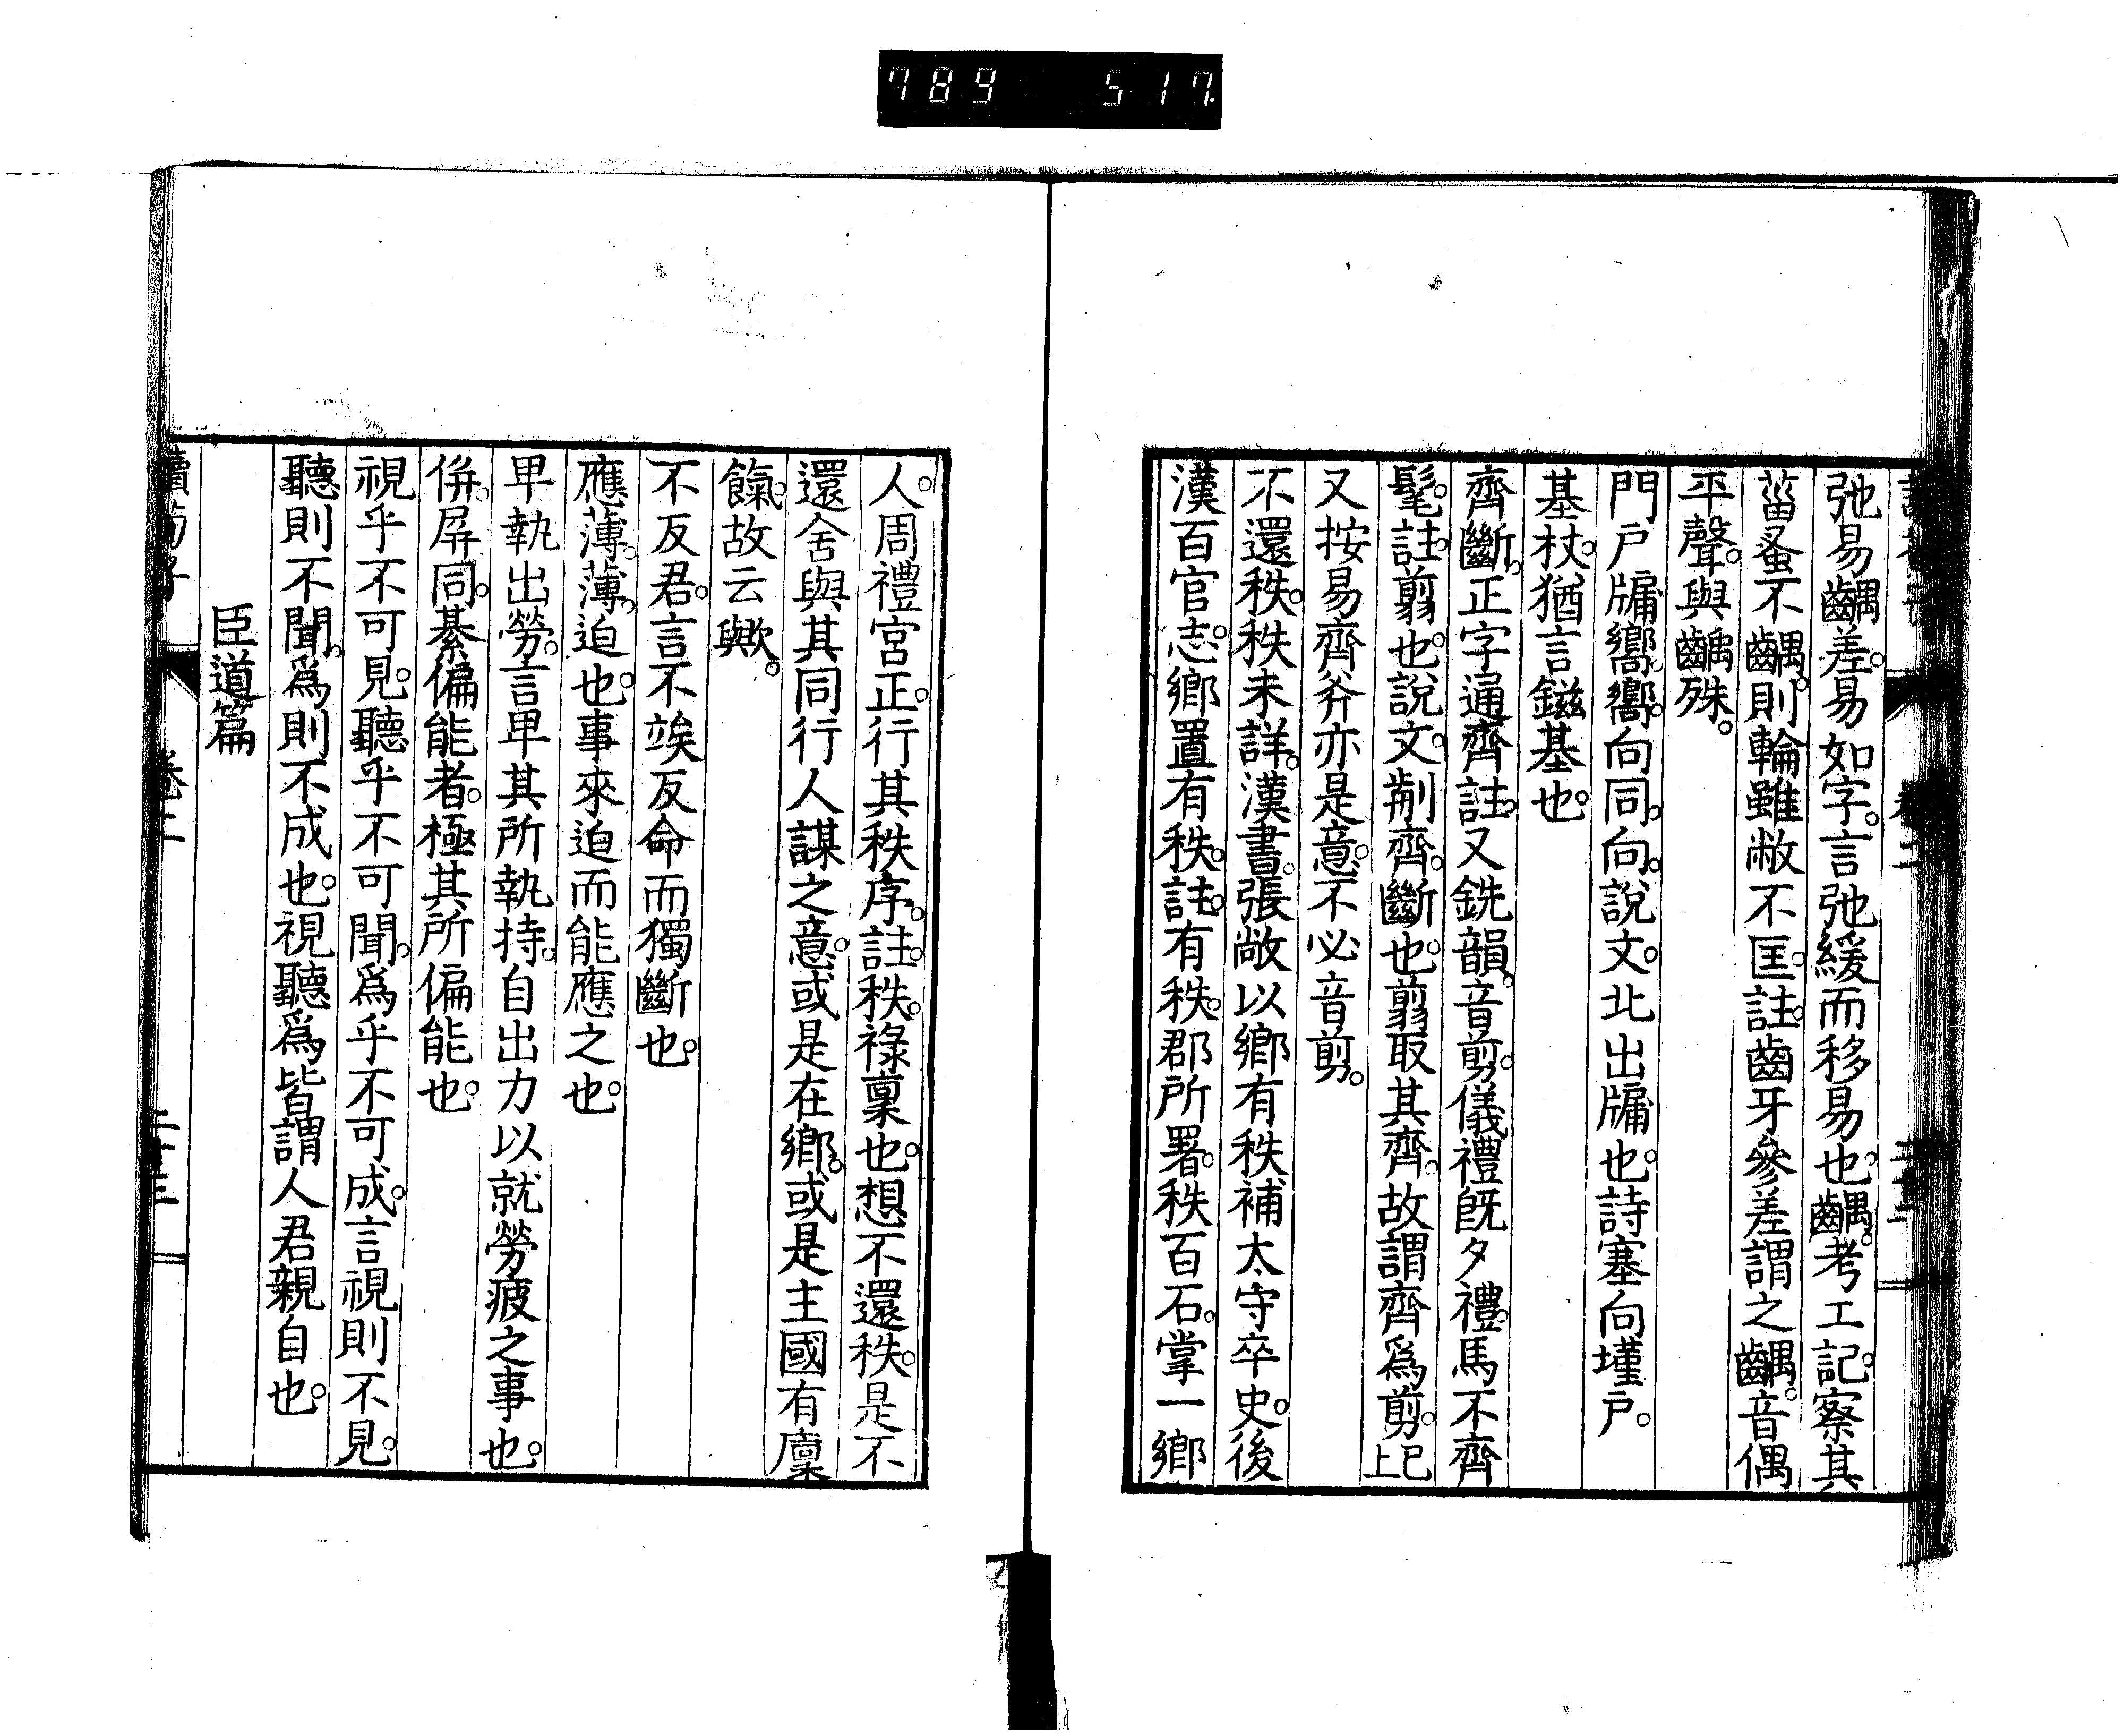 789 517
弛易齵差。易如字。言弛緩而移易也。齵。考工記。察其
菑蚤不齵。則輪雖敝不匡。註。齒牙參差謂之齵。音偶
平聲。與齲殊。
門戶牖嚮。嚮。向同。向。說文。北出牖也。詩塞向墐戶。
基杖。猶言鎡基也。
齊斷。正字通。齊。註。又銑韻。音剪。儀禮旣夕禮。馬不齊
髦。註。翦也。說文。𠜲齊。斷也。翦取其齊。故謂齊爲剪。已上
又按易齊斧亦是意。不必音剪。
不還秩。秩未詳。漢書。張敞以鄉有秩補太守卒史。後
漢百官志。鄉置有秩。註。有秩。郡所署。秩百石。掌一鄉
人。周禮宮正。行其秩序。註。秩。祿稟也。想不還秩。是不
還舍與其同行人謀之意。或是在鄉。或是主國有廩
餼。故云歟。
不反君。言不竢反命而獨斷也。
應薄。薄。迫也。事來迫而能應之也。
卑執出勞。言卑其所執持。自出力以就勞疲之事也。
倂。屛同。綦偏能者。極其所偏能也。
視乎不可見。聽乎不可聞。爲乎不可成。言視則不見。
聽則不聞。爲則不成也。視聽爲皆謂人君親自也。
臣道篇
讀荀子 卷二 二十三